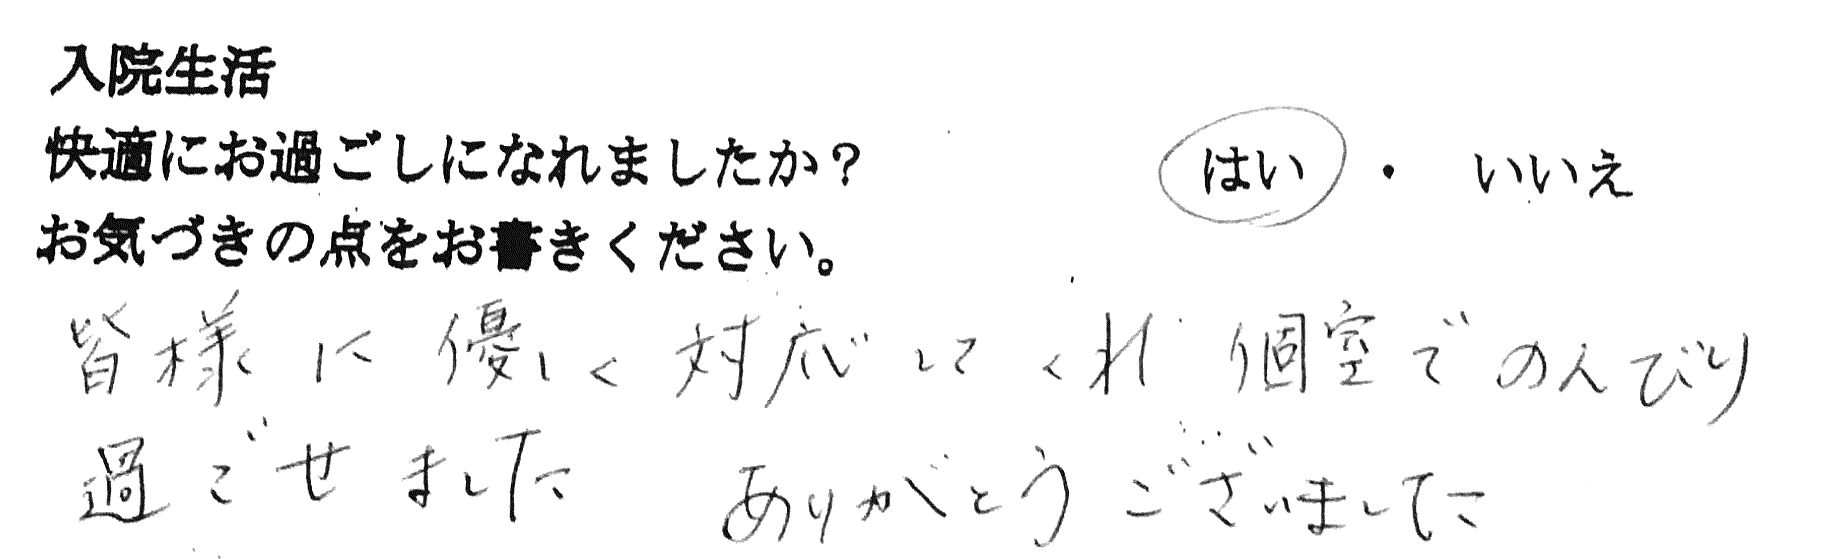 入院生活
快適にお過ごしになれましたか? はい ・ いいえ
お気づきの点をお書きください。
皆様に優しく対応してくれ 個室でのんびり
過ごせました ありがとうございました